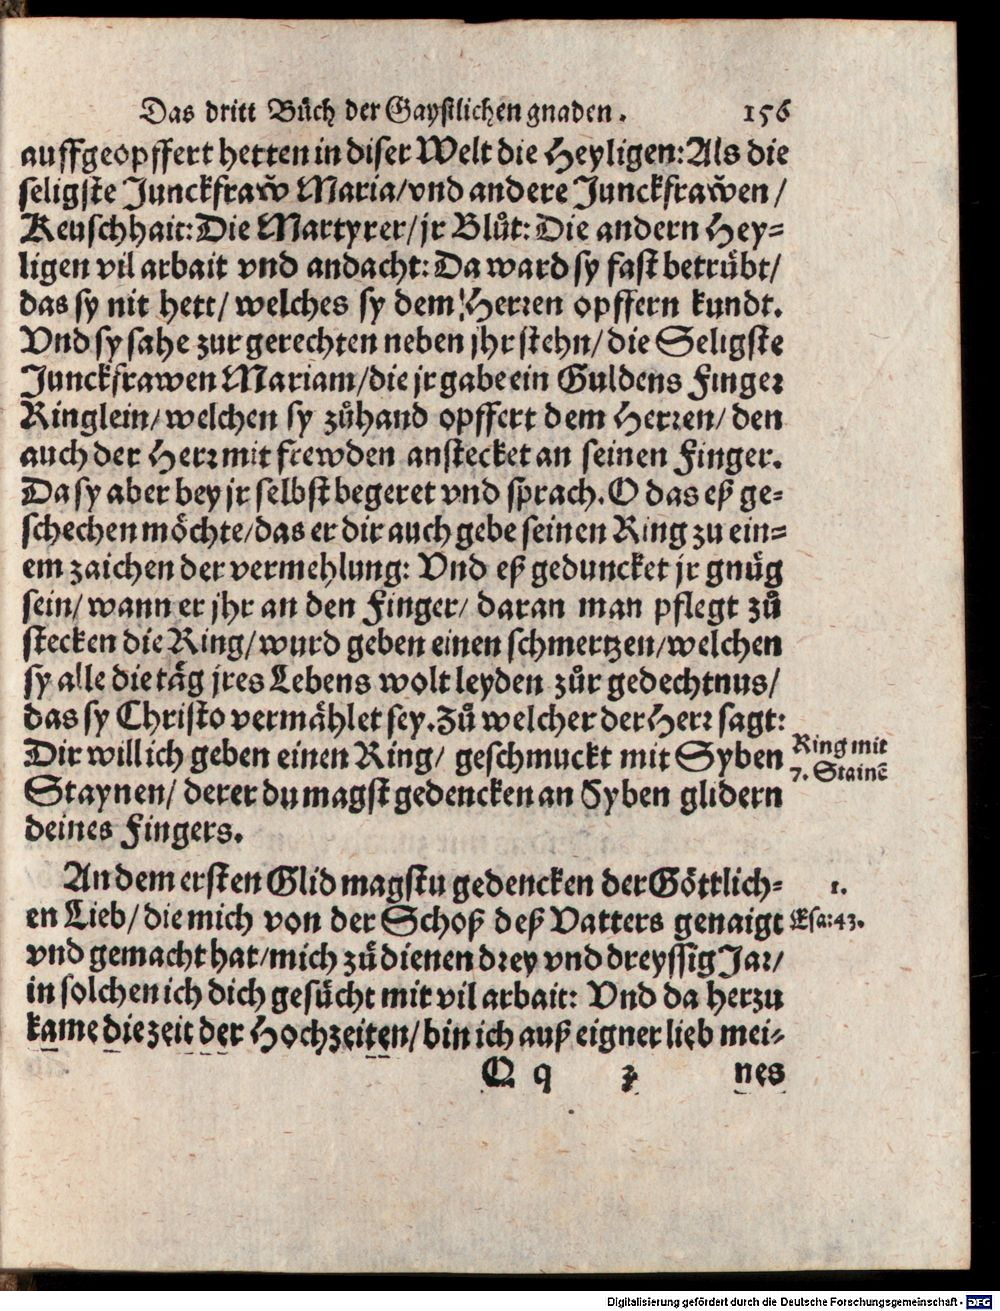 Das dritt Bůch der Gaystlichen gnaden. 156
auffgeopffert hetten in diser Welt die Heyligen: Als die
seligste Junckfraw̃ Maria/vnd andere Junckfraw̃en/
Keuschhait: Die Martyrer/jr Blůt: Die andern Hey-
ligen vil arbait vnd andacht: Da ward sy fast betrůbt/
das sy nit hett/ welches sy dem Herren opffern kundt.
Vnd sy sahe zur gerechten neben jhr stehn/ die Seligste
Junckfrawen Mariam/die jr gabe ein Guldens Finger
Ringlein/ welchen sy zůhand opffert dem Herren/ den
auch der Herr mit frewden anstecket an seinen Finger.
Da sy aber bey jr selbst begeret vnd sprach. O das eß ge-
schechen möchte/das er dir auch gebe seinen Ring zu ein-
em zaichen der vermehlung: Vnd eß geduncket jr gnůg
sein/ wann er jhr an den Finger/ daran man pflegt zů
stecken die Ring/ wurd geben einen schmertzen/welchen
sy alle die täg jres Lebens wolt leyden zůr gedechtnus/
das sy Christo vermählet sey. Zů welcher der Herr sagt:
Dir will ich geben einen Ring/ geschmuckt mit Syben
Ring mit
7. Stainẽ
Staynen/ derer du magst gedencken an Syben glidern
deines Fingers.
An dem ersten Glid magstu gedencken der Göttlich-
1.
en Lieb/ die mich von der Schoß deß Vatters genaigt
Esa: 43.
vnd gemacht hat/mich zů dienen drey vnd dreyssig Jar/
in solchen ich dich gesůcht mit vil arbait: Vnd da herzu
kame die zeit der Hochzeiten/ bin ich auß eigner lieb mei-
Q q 3 nes
Digitalisierung gefördert durch die Deutsche Forschungsgemeinschaft - DFG